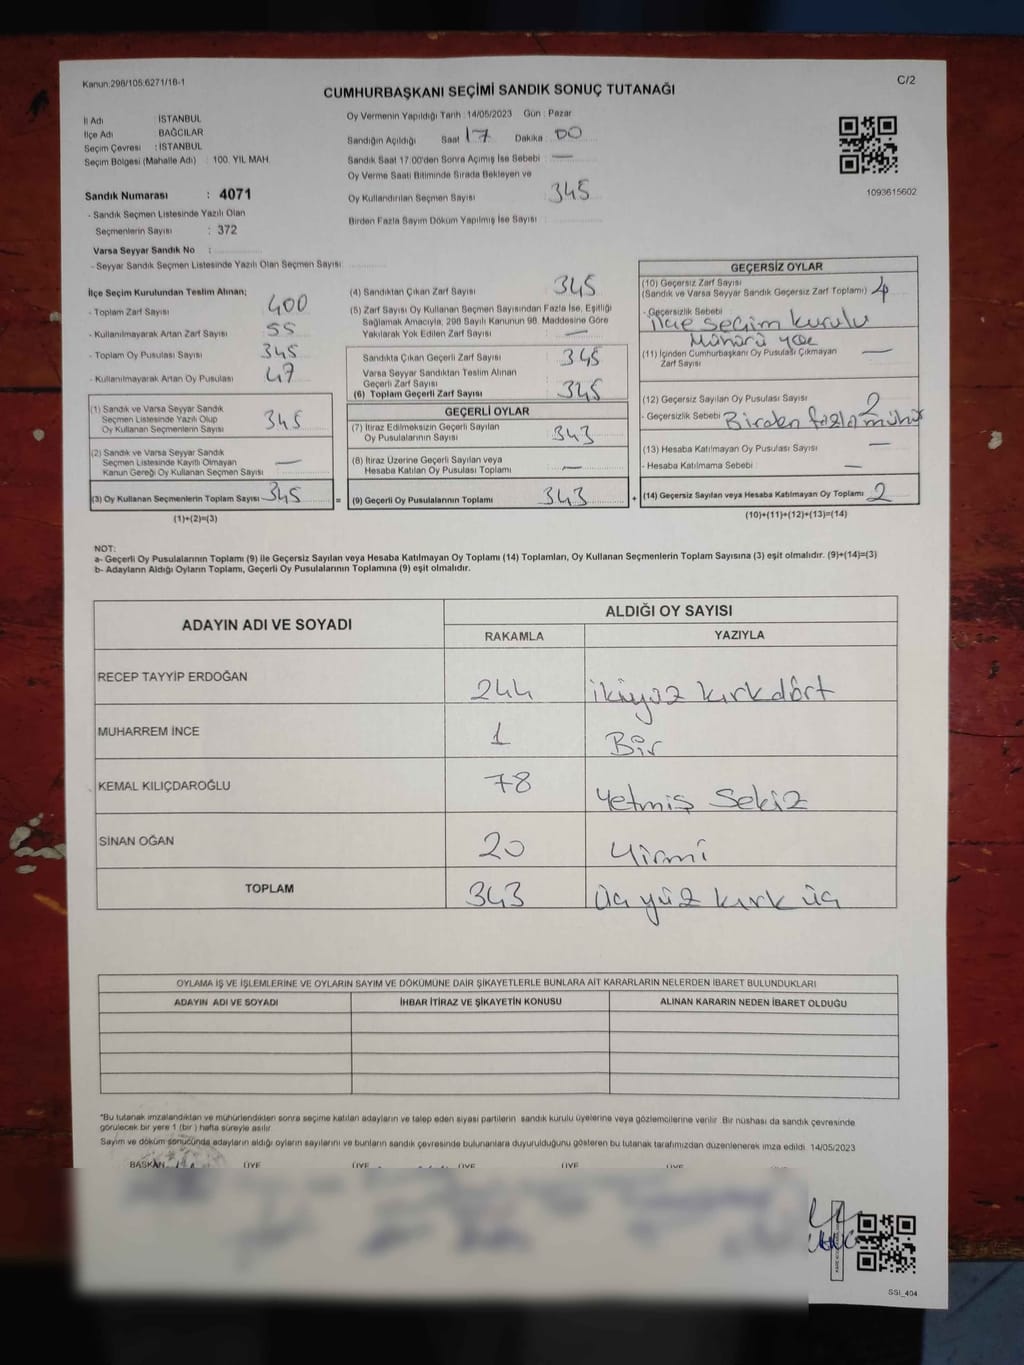 Kanun:298/105:6271/18-1
C/2
CUMHURBAŞKANI SEÇİMİ SANDIK SONUÇ TUTANAĞI
İl Adı : İSTANBUL
İlçe Adı : BAĞCILAR
Seçim Çevresi : İSTANBUL
Seçim Bölgesi (Mahalle Adı) : 100. YIL MAH.
Sandık Numarası : 4071
- Sandık Seçmen Listesinde Yazılı Olan
Seçmenlerin Sayısı : 372
Varsa Seyyar Sandık No :
- Seyyar Sandık Seçmen Listesinde Yazılı Olan Seçmen Sayısı:
Oy Vermenin Yapıldığı Tarih : 14/05/2023 Gün : Pazar
Sandığın Açıldığı Saat 17 Dakika : 00
Sandık Saat 17.00'den Sonra Açımış İse Sebebi : —
Oy Verme Saati Bitiminde Sırada Bekleyen ve
Oy Kullandırılan Seçmen Sayısı : 345
Birden Fazla Sayım Döküm Yapılmış İse Sayısı :
1093615602
İlçe Seçim Kurulundan Teslim Alınan;
- Toplam Zarf Sayısı : 400
- Kullanılmayarak Artan Zarf Sayısı : 55
- Toplam Oy Pusulası Sayısı : 345
- Kullanılmayarak Artan Oy Pusulası : 47
(1) Sandık ve Varsa Seyyar Sandık
Seçmen Listesinde Yazılı Olup
Oy Kullanan Seçmenlerin Sayısı : 345
(2) Sandık ve Varsa Seyyar Sandık
Seçmen Listesinde Kayıtlı Olmayan
Kanun Gereği Oy Kullanan Seçmen Sayısı : —
(3) Oy Kullanan Seçmenlerin Toplam Sayısı : 345
(1)+(2)=(3)
(4) Sandıktan Çıkan Zarf Sayısı : 345
(5) Zarf Sayısı Oy Kullanan Seçmen Sayısından Fazla İse, Eşitliği
Sağlamak Amacıyla, 298 Sayılı Kanunun 98. Maddesine Göre
Yakılarak Yok Edilen Zarf Sayısı : —
Sandıkta Çıkan Geçerli Zarf Sayısı : 345
Varsa Seyyar Sandıktan Teslim Alınan
Geçerli Zarf Sayısı :
(6) Toplam Geçerli Zarf Sayısı : 345
GEÇERLİ OYLAR
(7) İtiraz Edilmeksizin Geçerli Sayılan
Oy Pusulalarının Sayısı : 343
(8) İtiraz Üzerine Geçerli Sayılan veya
Hesaba Katılan Oy Pusulası Toplamı : —
=
(9) Geçerli Oy Pusulalarının Toplamı : 343
+
GEÇERSİZ OYLAR
(10) Geçersiz Zarf Sayısı
(Sandık ve Varsa Seyyar Sandık Geçersiz Zarf Toplamı) : 4
- Geçersizlik Sebebi :
ilçe seçim kurulu
Mühürü yok
(11) İçinden Cumhurbaşkanı Oy Pusulası Çıkmayan
Zarf Sayısı : —
(12) Geçersiz Sayılan Oy Pusulası Sayısı : 2
- Geçersizlik Sebebi : Birden fazla mühür
(13) Hesaba Katılmayan Oy Pusulası Sayısı : —
- Hesaba Katılmama Sebebi : —
(14) Geçersiz Sayılan veya Hesaba Katılmayan Oy Toplamı : 2
(10)+(11)+(12)+(13)=(14)
NOT:
a- Geçerli Oy Pusulalarının Toplamı (9) ile Geçersiz Sayılan veya Hesaba Katılmayan Oy Toplamı (14) Toplamları, Oy Kullanan Seçmenlerin Toplam Sayısına (3) eşit olmalıdır. (9)+(14)=(3)
b- Adayların Aldığı Oyların Toplamı, Geçerli Oy Pusulalarının Toplamına (9) eşit olmalıdır.
ADAYIN ADI VE SOYADI
ALDIĞI OY SAYISI
RAKAMLA YAZIYLA
RECEP TAYYİP ERDOĞAN 244 ikiyüz kırkdört
MUHARREM İNCE 1 Bir
KEMAL KILIÇDAROĞLU 78 Yetmiş Sekiz
SİNAN OĞAN 20 Yirmi
TOPLAM 343 üç yüz kırk üç
OYLAMA İŞ VE İŞLEMLERİNE VE OYLARIN SAYIM VE DÖKÜMÜNE DAİR ŞİKAYETLERLE BUNLARA AİT KARARLARIN NELERDEN İBARET BULUNDUKLARI
ADAYIN ADI VE SOYADI İHBAR İTİRAZ VE ŞİKAYETİN KONUSU ALINAN KARARIN NEDEN İBARET OLDUĞU
*Bu tutanak imzalandıktan ve mühürlendikten sonra seçime katılan adayların ve talep eden siyasi partilerin sandık kurulu üyelerine veya gözlemcilerine verilir. Bir nüshası da sandık çevresinde
görülecek bir yere 1 (bir) hafta süreyle asılır.
Sayım ve döküm sonucunda adayların aldığı oyların sayılarını ve bunların sandık çevresinde bulunanlara duyurulduğunu gösteren bu tutanak tarafımızdan düzenlenerek imza edildi. 14/05/2023
BAŞKAN ÜYE ÜYE ÜYE ÜYE ÜYE
SSI_404